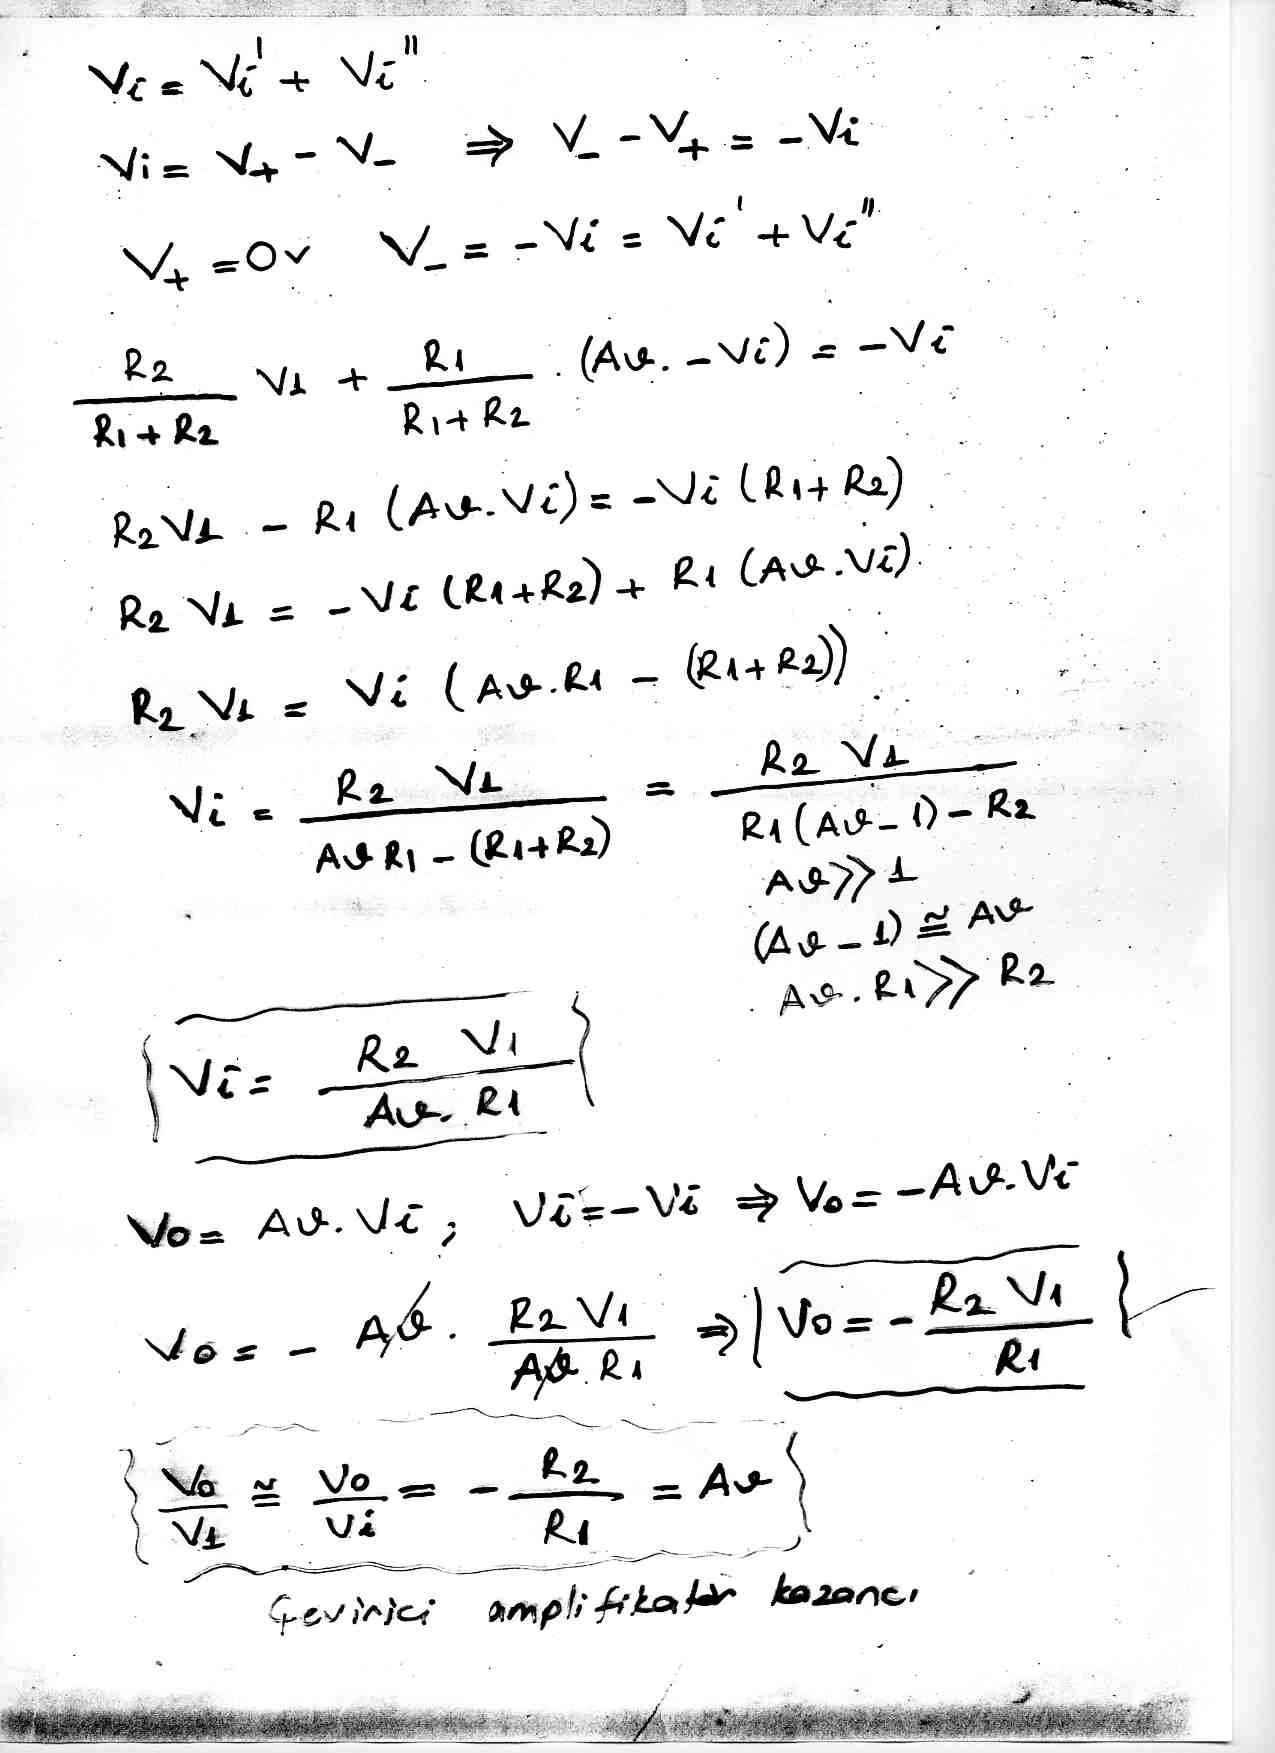 Vi = Vi' + Vi''
Vi = V+ - V- ⇒ V- - V+ = -Vi
V+ = 0V V- = -Vi = Vi' + Vi''
R2/(R1+R2) V1 + R1/(R1+R2) . (Aϑ. -Vi) = -Vi
R2 V1 - R1 (Aϑ.Vi) = -Vi (R1+R2)
R2 V1 = -Vi (R1+R2) + R1 (Aϑ.Vi)
R2 V1 = Vi (Aϑ.R1 - (R1+R2))
Vi = R2 V1/(Aϑ R1 - (R1+R2)) = R2 V1/(R1(Aϑ-1)-R2)
Aϑ >> 1
(Aϑ-1) ≅ Aϑ
Aϑ.R1 >> R2
{Vi = R2 V1/(Aϑ. R1)}
Vo = Aϑ.Vi ; Vi = -Vi ⇒ Vo = -Aϑ.Vi
Vo = - Aϑ . R2 V1/(Aϑ.R1) ⇒ | Vo = - R2 V1/R1 }
{Vo/V1 ≅ Vo/Vi = - R2/R1 = Aϑ}
Çevirici amplifikatör kazancı